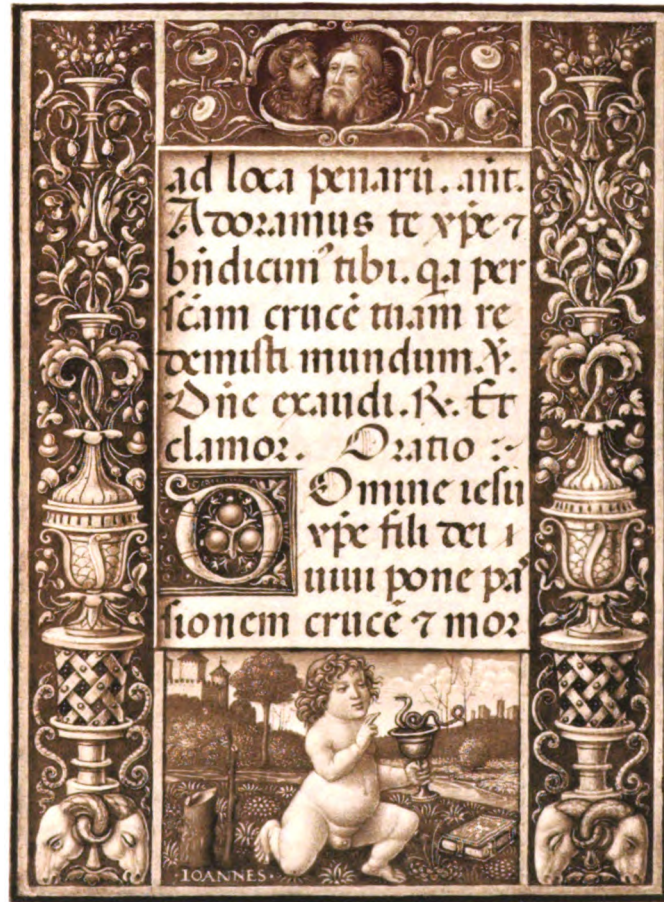 ad loca penarū. añt.
Adoramus te xp̄e ⁊
bn̄dicim᷒ tibi. q̇a per
sc̄am crucē tuam re
demisti mundum. ℣.
Dn̄e exaudi. ℟. Et
clamor. Oratio :~
Domine iesu
xp̄e fili dei
uiui pone pa
sionem crucē ⁊ mor
·IOANNES·